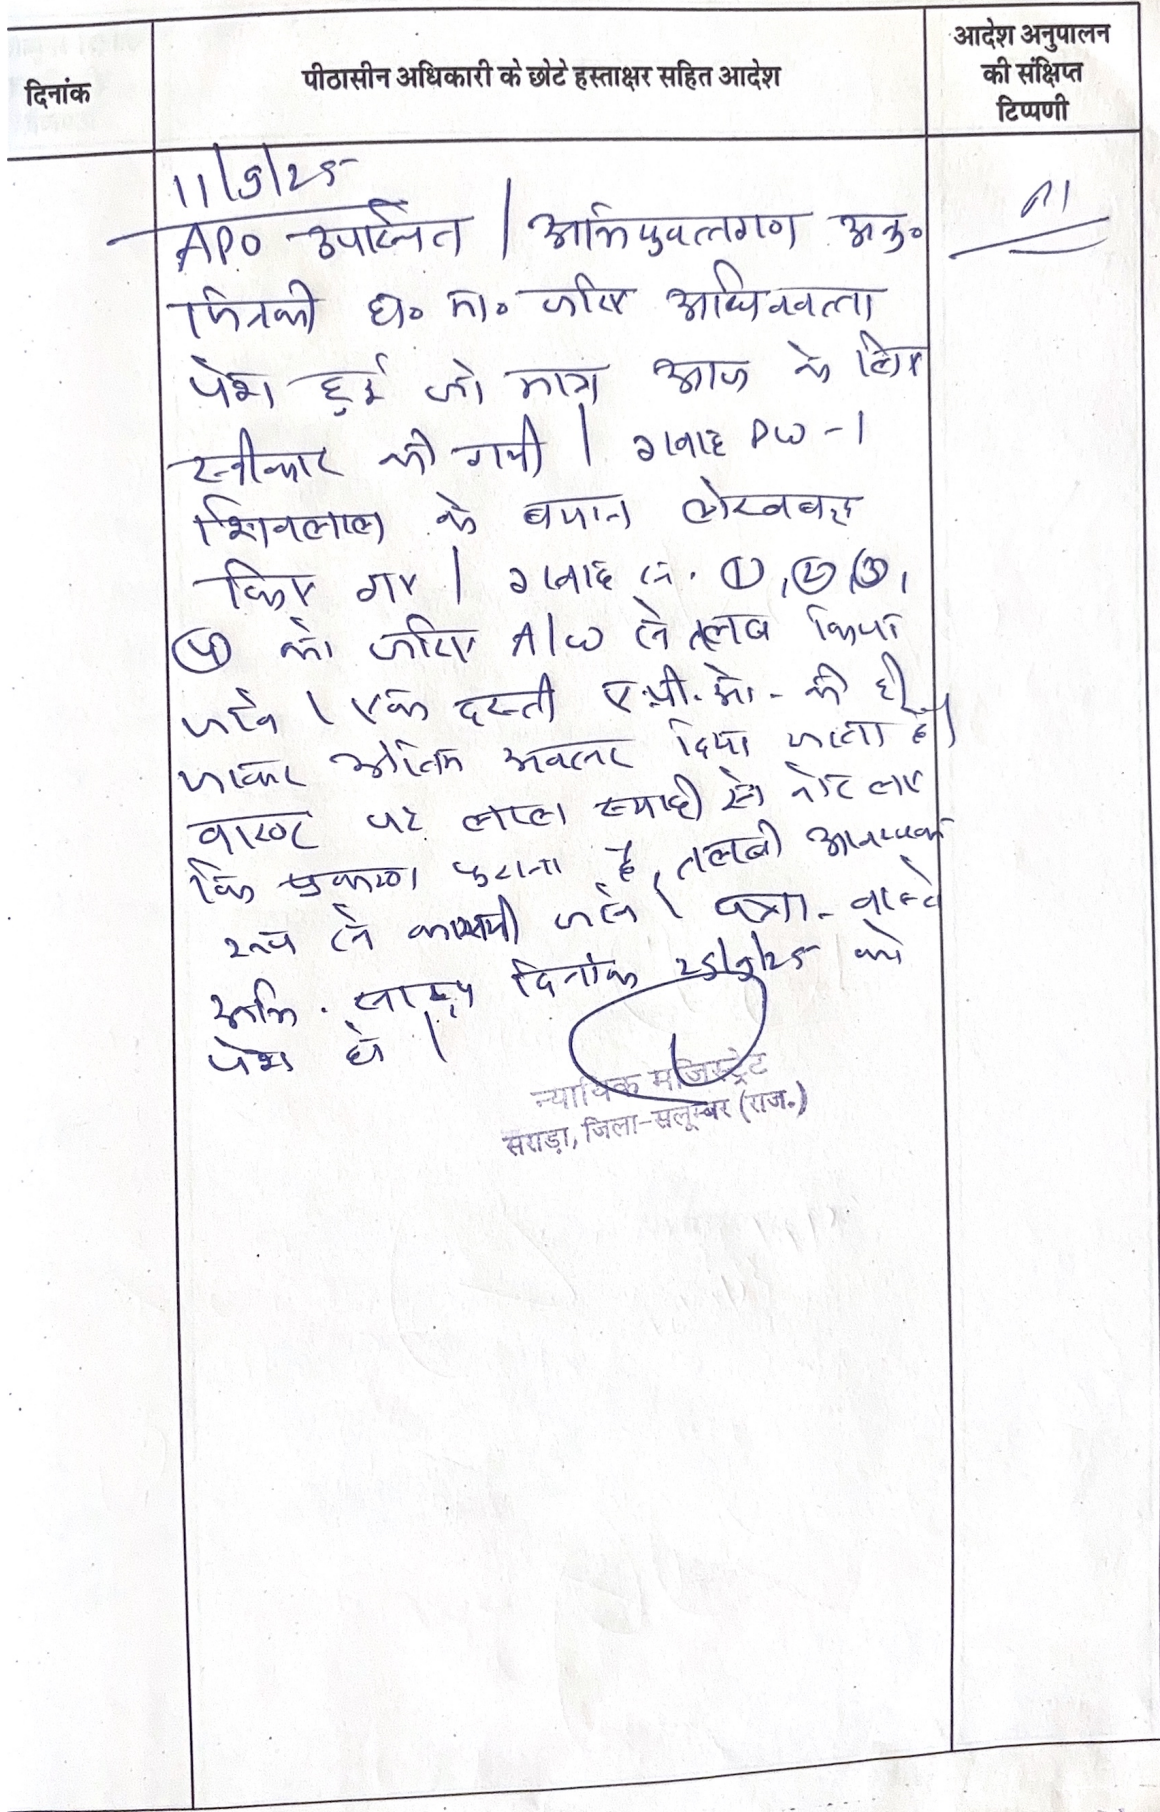 दिनांक
पीठासीन अधिकारी के छोटे हस्ताक्षर सहित आदेश
आदेश अनुपालन
की संक्षिप्त
टिप्पणी
11/9/25
APO उपस्थित | अभियुक्तगण अनु०
जिनकी ह० मा० जरिए अधिवक्ता
पेश हुई जो मात्र आज के लिए
स्वीकार की गयी | गवाह PW-1
शिवलाल के बयान लेखबद्ध
किए गए | गवाह सं. ①, ②, ③,
④ को जरिए A/W से तलब किया
जावे । एक दस्ती ए.पी.ओ. को दी
जाकर अंतिम अवसर दिया जाता है|
वारण्ट पर लाल स्याही से नोट लगाए
कि प्रकरण पुराना है, तलबी आवश्यक
रूप से करायी जावे । पत्रा. वास्ते
अभि. साक्ष्य दिनांक 25/9/25 को
पेश हो |
न्यायिक मजिस्ट्रेट
सराड़ा, जिला-सलूम्बर (राज.)